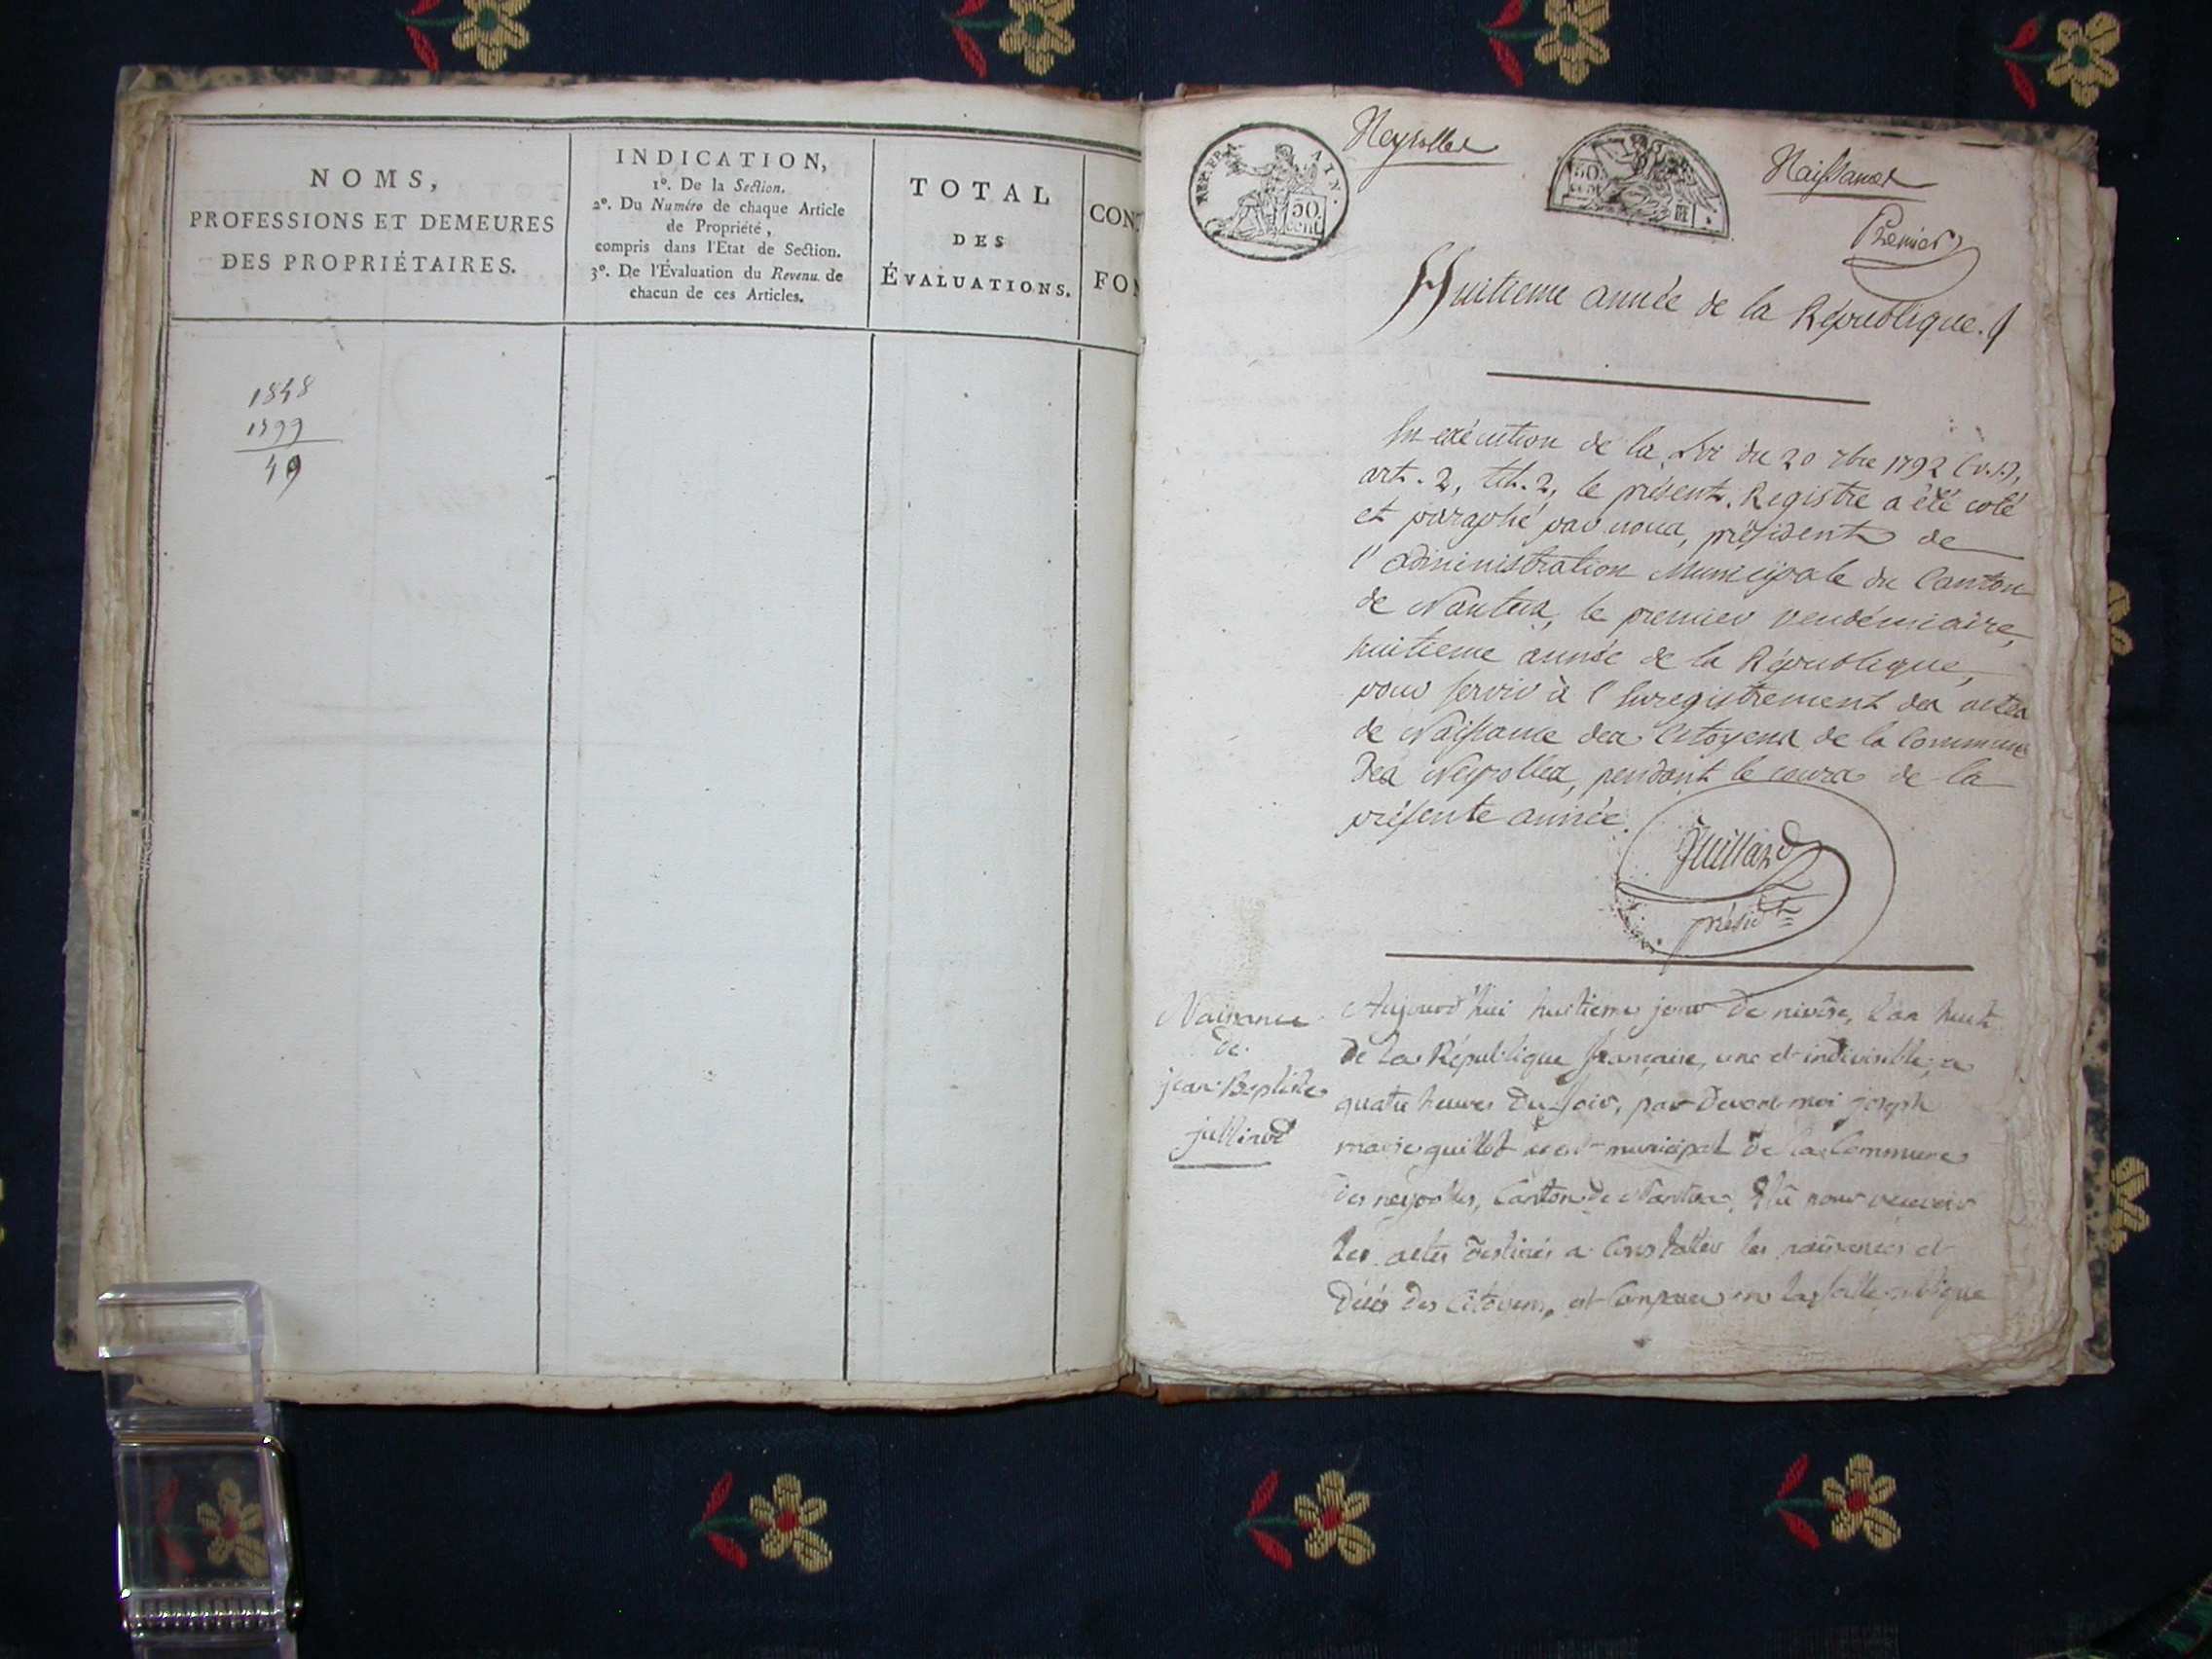 NOMS,
PROFESSIONS ET DEMEURES
DES PROPRIÉTAIRES.
INDICATION,
1º. De la Section.
2º. Du Numéro de chaque Article
de Propriété,
compris dans l'Etat de Section.
3º. De l'Évaluation du Revenu de
chacun de ces Articles.
TOTAL
DES
ÉVALUATIONS.
CONT
FON
1848
1799
49
REP. FRA. AIN.
50
cent
Neyrolles
50
cent
Naissances
Premier
Huitieme année de la République.
En exécution de la Loi du 20 7bre 1792 (v.s.),
art. 2, tit. 2, le présent Registre a été coté
et paraphé par nous, président de
l'administration Municipale du Canton
de Nantua, le premier vendémiaire,
huitieme année de la République,
pour servir à l'Enregistrement des actes
de Naissance des Citoyens de la Commune
des Neyrolles, pendant le cours de la
présente année.
présidt
Naissance
de
jean Baptiste
jullirod
Aujourd'hui huitieme jour de nivôse, l'an huit
de la République française, une et indivisible, a
quatre heures du soir, par devant moi joseph
marie guillot agent municipal de la Commune
des neyrolles, Canton de Nantua, élû pour recevoir
les actes destinés a Constatter les naissances et
décès des Citoyens, est Comparu en la salle publique